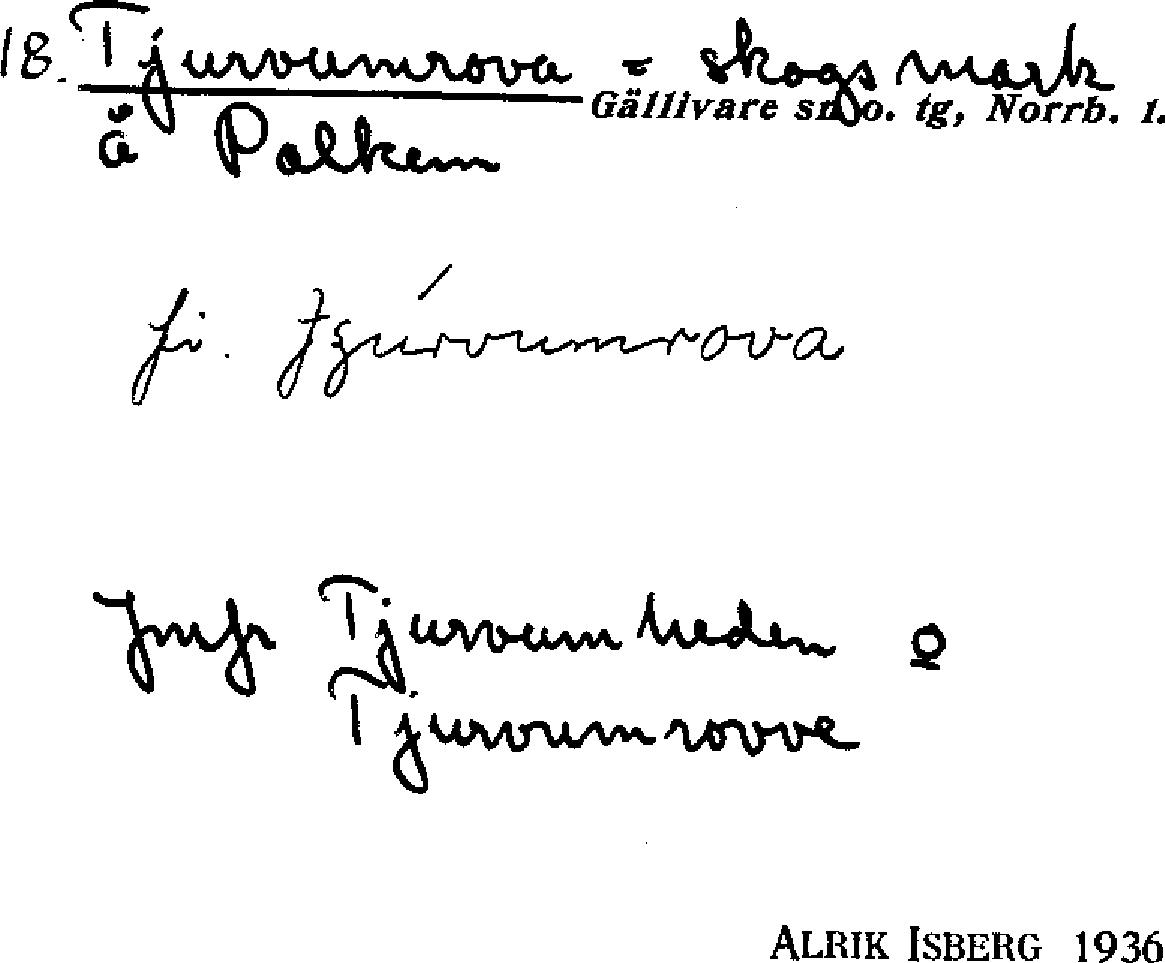 18. Tjurvumrova = skogsmark
Gällivare sn o. tg, Norrb. l.
å Palkem
fi.
Jmfr Tjurvumheden o
Tjurvumrovve
ALRIK ISBERG 1936